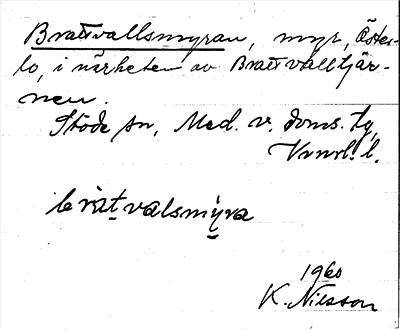 Brattvallsmyran, myr, Öster-
lo, i närheten av Brattvalltjär-
nen.
Stöde sn, Med. v. doms. tg,
Vnrl. l.
bràt̲valsmy̲ra
1960
K. Nilsson